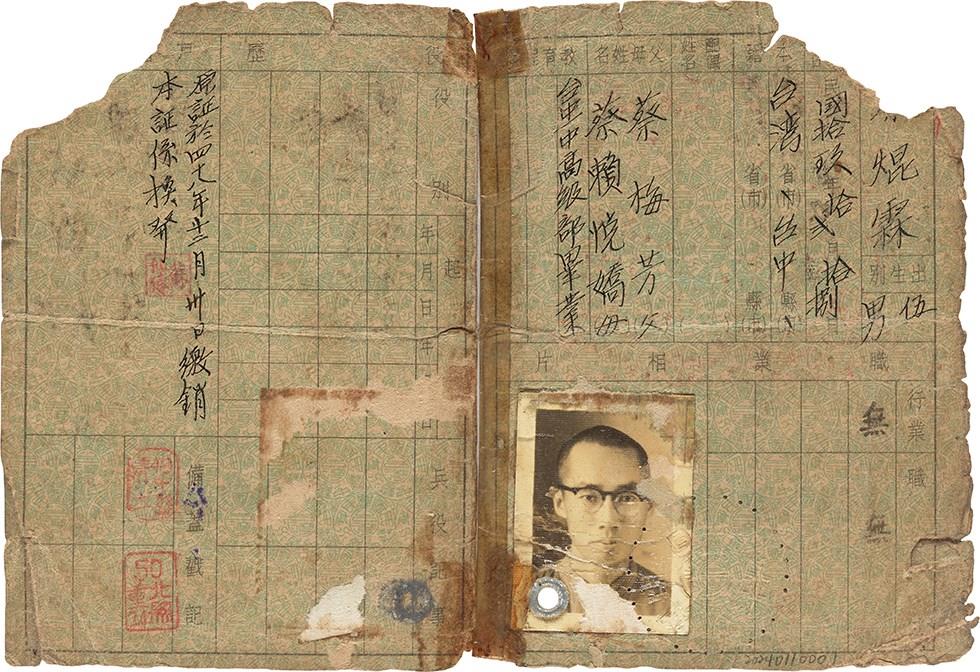 出生
伍
焜霖
別
男
國拾玖年拾弍月拾捌日
台灣省(市)台中縣(市)
省(市) 縣(市)
籍
姓名
父母姓名
蔡梅芳父
蔡賴悅嬌母
教育
台中高級部畢業
職業
相片
行業
無
職
無
役
歷
役別
起
年月日
年
日
兵役記事
原証於四十八年十二月卅日繳銷
本証係換發
備蓋戳記